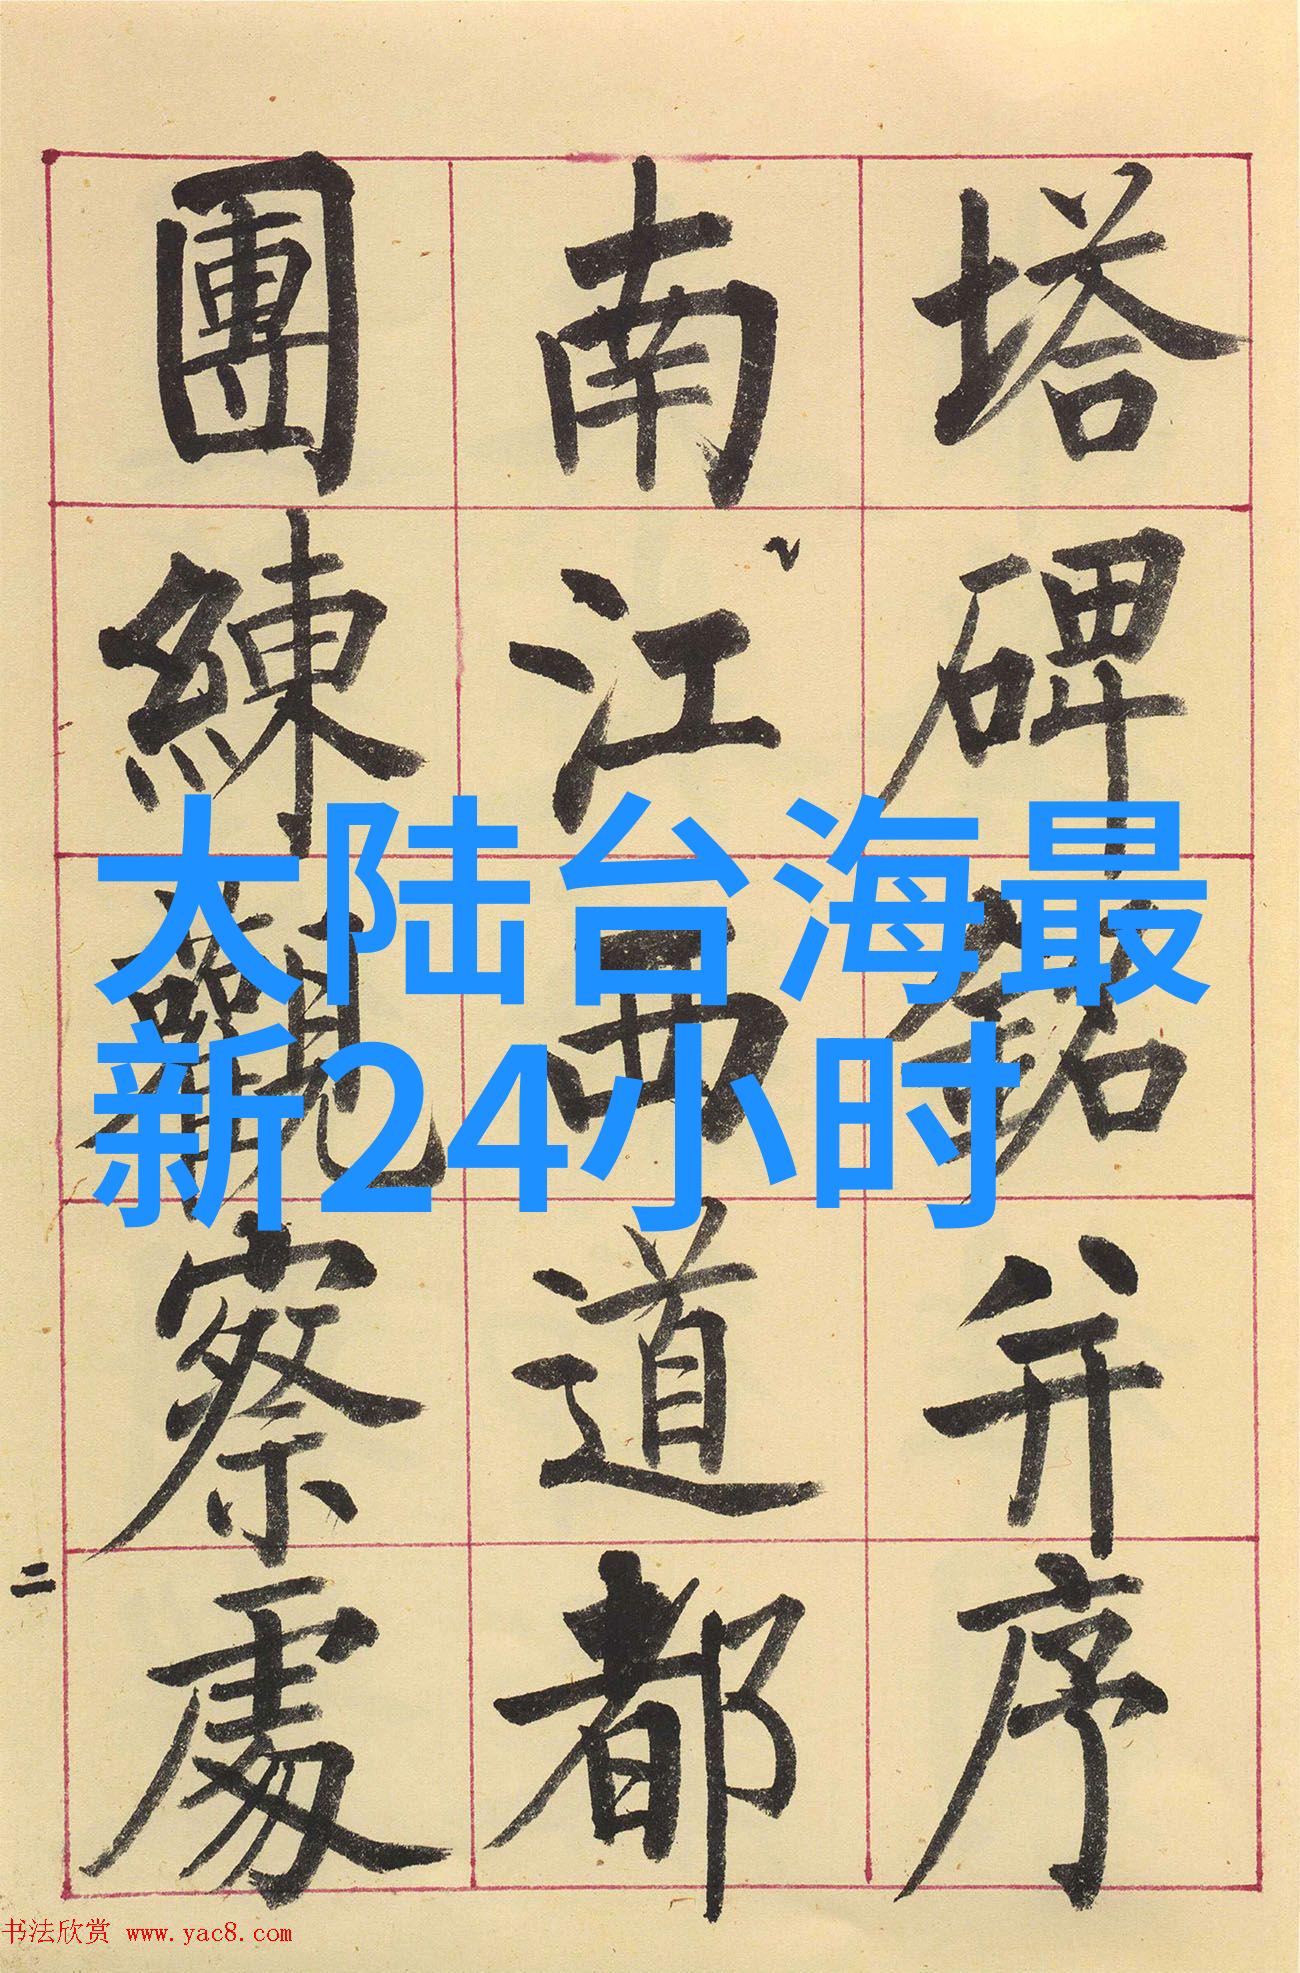 塔碑銘并序
南江西道都
團練觀察處
二
大陆台海最
新24小时
书法欣赏 www.yac8.com